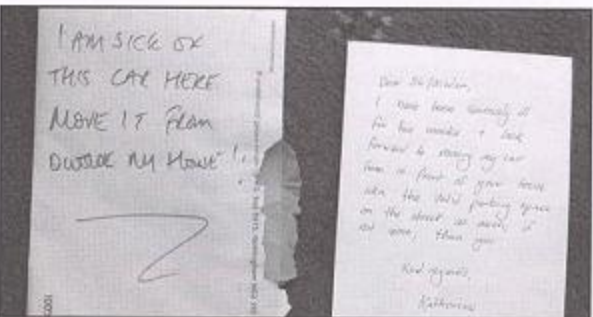 I AM SICK OF
THIS CAR HERE
MOVE IT FROM
OUTSIDE MY HOME!
Dear Sir/Madam,
I have been seriously ill
for two weeks + look
forward to moving my car
from in front of your house
when the valid parking space
on the street as much, if
not more, than you
Kind regards,
Katherine